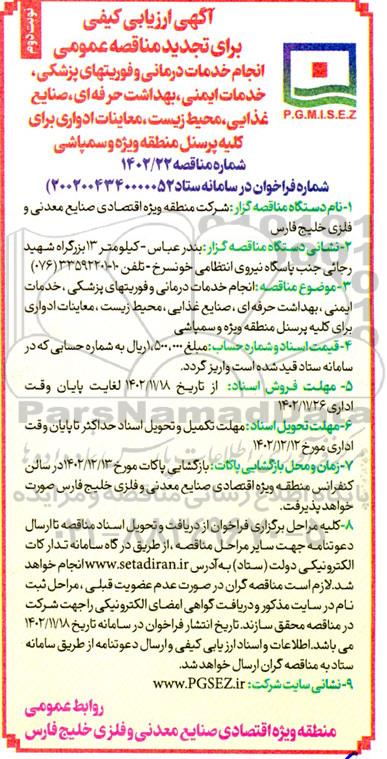 نوبت دوم
آگهی ارزیابی کیفی
برای تجدید مناقصه عمومی
انجام خدمات درمانی و فوریتهای پزشکی،
خدمات ایمنی، بهداشت حرفه ای، صنایع
غذایی، محیط زیست، معاینات ادواری برای
کلیه پرسنل منطقه ویژه و سمپاشی
P.G.M.I.S.E.Z
شماره مناقصه ۱۴۰۲/۲۲
شماره فراخوان در سامانه ستاد ۲۰۰۲۰۰۴۳۴۰۰۰۰۰۵۲)
۱-نام دستگاه مناقصه گزار: شرکت منطقه ویژه اقتصادی صنایع معدنی و
فلزی خلیج فارس
۲-نشانی دستگاه مناقصه گزار: بندرعباس - کیلومتر ۱۳ بزرگراه شهید
رجائی جنب پاسگاه نیروی انتظامی خونسرخ - تلفن ۱۰-۳۳۵۹۲۲۰۱ (۰۷۶)
۳-موضوع مناقصه: انجام خدمات درمانی و فوریتهای پزشکی، خدمات
ایمنی، بهداشت حرفه ای، صنایع غذایی، محیط زیست، معاینات ادواری
برای کلیه پرسنل منطقه ویژه و سمپاشی
۴-قیمت اسناد و شماره حساب: مبلغ ۱,۵۰۰,۰۰۰ ریال به شماره حسابی که در
سامانه ستاد قید شده است واریز گردد.
۵- مهلت فروش اسناد: از تاریخ ۱۴۰۲/۱۱/۱۸ لغایت پایان وقت
اداری ۱۴۰۲/۱۱/۲۶
۶-مهلت تحویل اسناد: مهلت تکمیل و تحویل اسناد حداکثر تا پایان وقت
اداری مورخ ۱۴۰۲/۱۲/۱۲
۷-زمان و محل بازگشایی پاکات: بازگشایی پاکات مورخ ۱۴۰۲/۱۲/۱۳ در سالن
کنفرانس منطقه ویژه اقتصادی صنایع معدنی و فلزی خلیج فارس صورت
خواهد پذیرفت.
۸-کلیه مراحل برگزاری فراخوان از دریافت و تحویل اسناد مناقصه تا ارسال
دعوتنامه جهت سایر مراحل مناقصه، از طریق درگاه سامانه تدارکات
الکترونیکی دولت (ستاد) به آدرس www.setadiran.ir انجام خواهد
شد. لازم است مناقصه گران در صورت عدم عضویت قبلی، مراحل ثبت
نام در سایت مذکور و دریافت گواهی امضای الکترونیکی را جهت شرکت
در مناقصه محقق سازند. تاریخ انتشار فراخوان در سامانه تاریخ ۱۴۰۲/۱۱/۱۸
می باشد. اطلاعات و اسناد ارزیابی کیفی و ارسال دعوتنامه از طریق سامانه
ستاد به مناقصه گران ارسال خواهد شد.
۹-نشانی سایت شرکت: www.PGSEZ.ir
روابط عمومی
منطقه ویژه اقتصادی صنایع معدنی و فلزی خلیج فارس